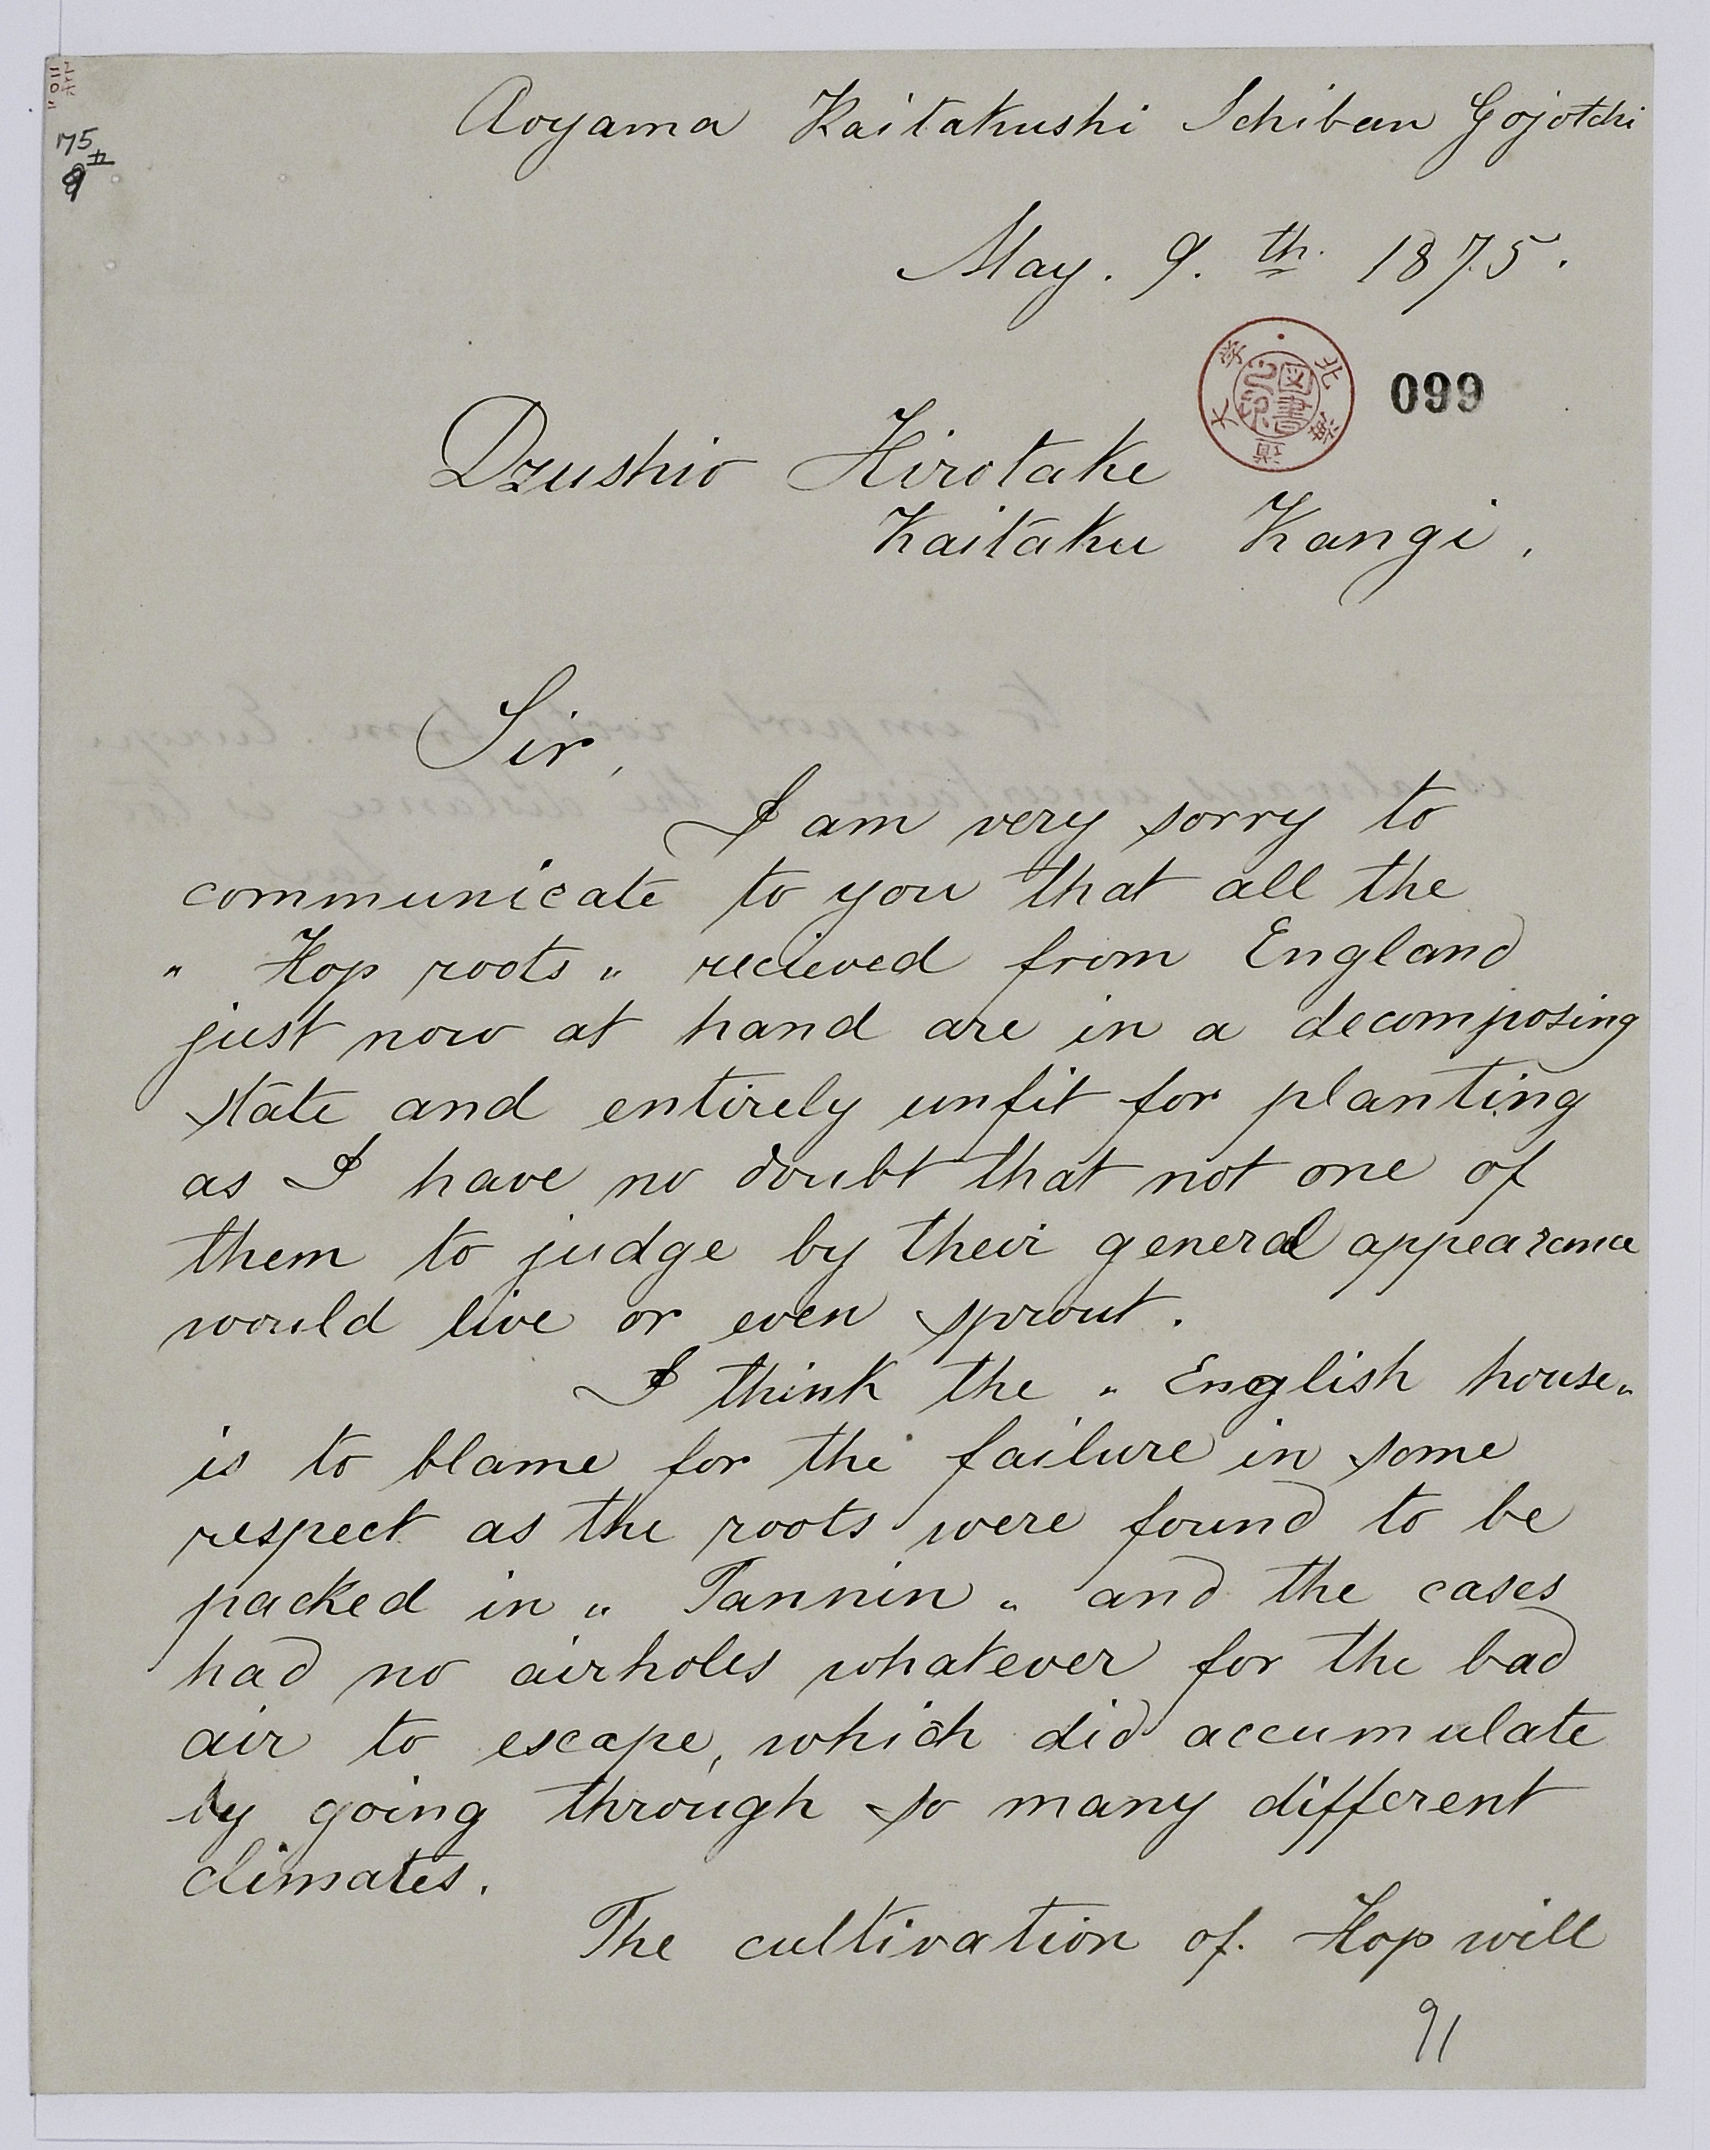 Aoyama Kaitakushi Ichiban Gojotchi
May. 9.th. 1875.
北海道大学
図書之印
099
Dzushio Hirotake
Kaitaku Kangi.
Sir,
I am very sorry to
communicate to you that all the
" Hop roots " recieved from England
just now at hand are in a decomposing
state and entirely unfit for planting
as I have no doubt that not one of
them to judge by their general appearance
would live or even sprout.
I think the " English house "
is to blame for the failure in some
respect as the roots were found to be
packed in " Tannin " and the cases
had no airholes whatever for the bad
air to escape, which did accumulate
by going through so many different
climates.
The cultivation of. Hop will
91